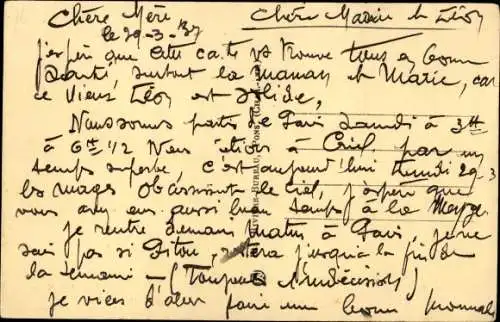 Chère Mère Chère Marie et Léon
le 29-3-37
j'espère que cette carte vs trouve tous en bonne
santé, surtout la maman et Marie, car
ce vieux Léon est solide,
Nous sommes partis de Paris Samedi à 3H
à 6H 1/2 Nous étions à Criel par un
temps superbe, c'est aujourd'hui lundi 29-3
les nuages obscurcissent le ciel, j'espère que
vous avez eu aussi beau temps à la
je rentre demain matin à Paris, je ne
sais pas si restera jusqu'à la fin de
la semaine - (Toujours l'indécision)
je viens d'aller faire une bonne